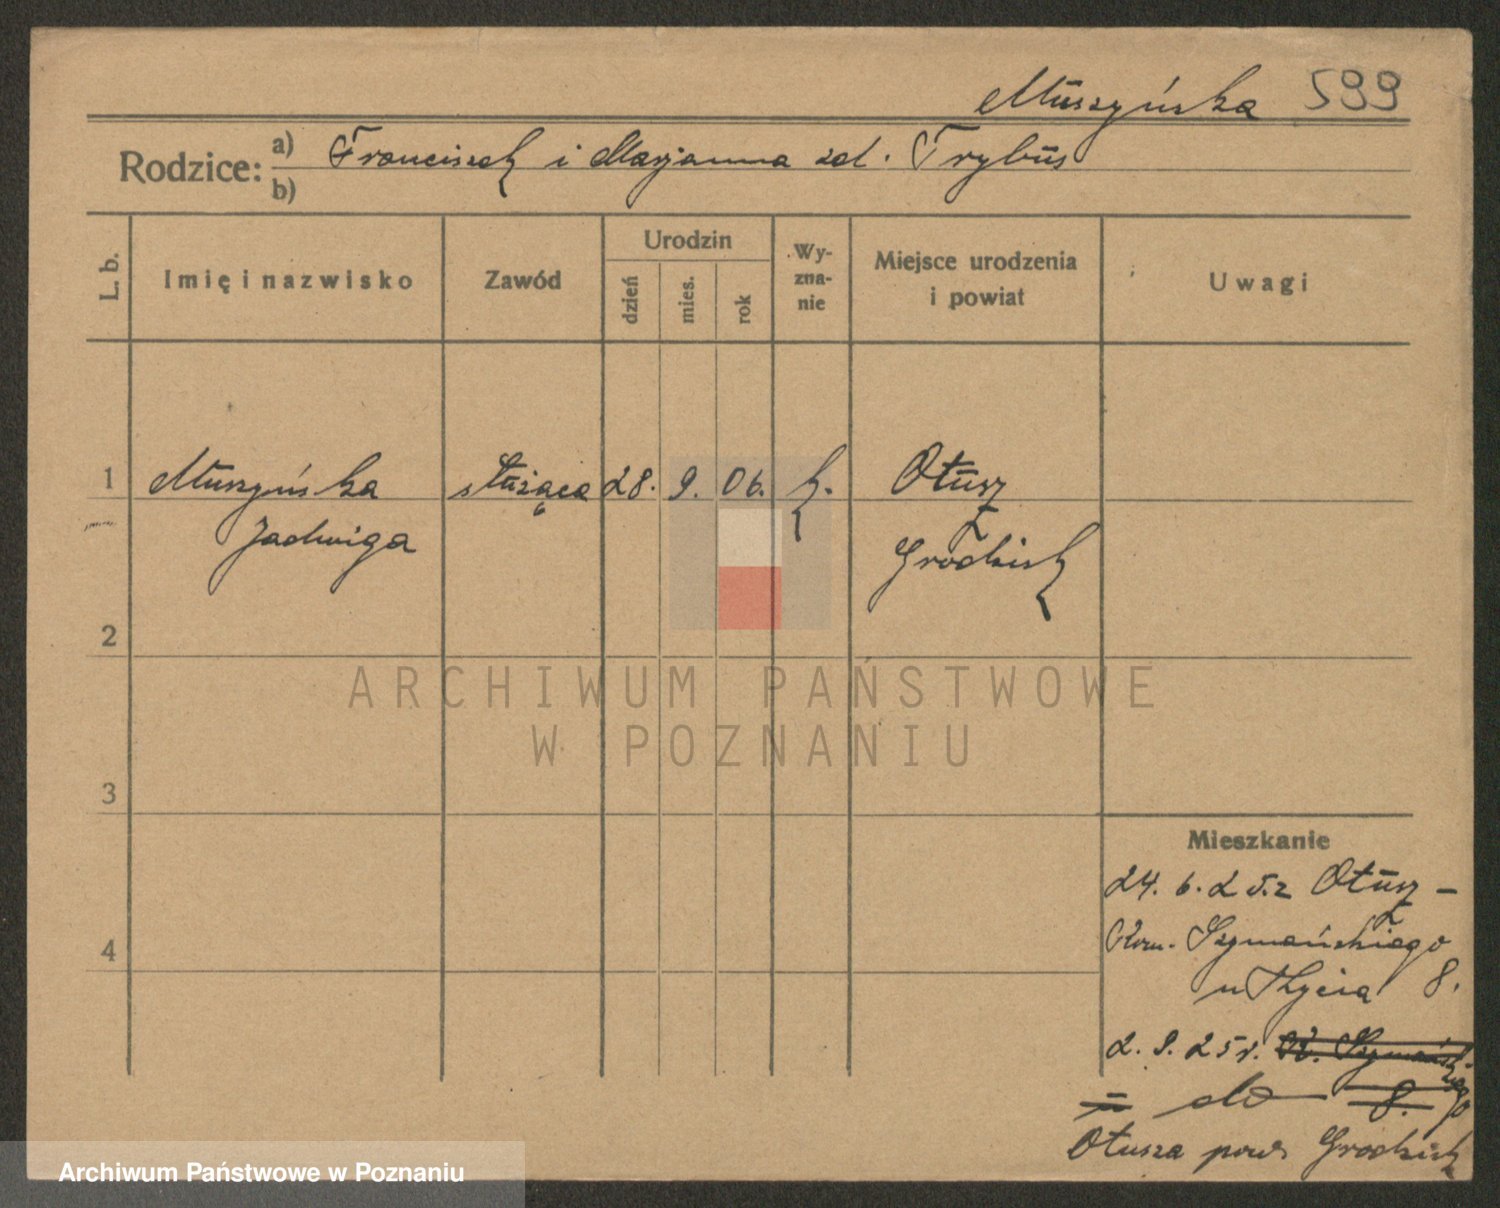 Muszyńska 599
Rodzice: a) Franciszek i Marjanna zd. Trybus
b)
L. b.
Imię i nazwisko
Zawód
Urodzin
dzień
mies.
rok
Wy-
zna-
nie
Miejsce urodzenia
i powiat
Uwagi
1 Muszyńska służąca 28. 9. 06. k. Otusz
Jadwiga Grodzisk
2
ARCHIWUM PAŃSTWOWE
W POZNANIU
3
Mieszkanie
24. 6. 25. z Otusz –
Szymańskiego
8.
2. 9. 25 r. Szymańskiego
do 8.
Otusza pow. Grodzisk
4
Archiwum Państwowe w Poznaniu